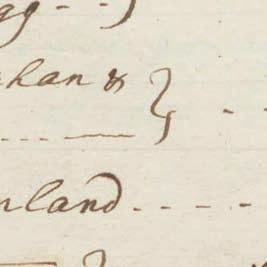 gg - - )
khan & }
- - - — } - -
nland - - - - -